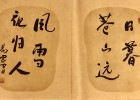 日暮
苍山远
風雪
夜归人